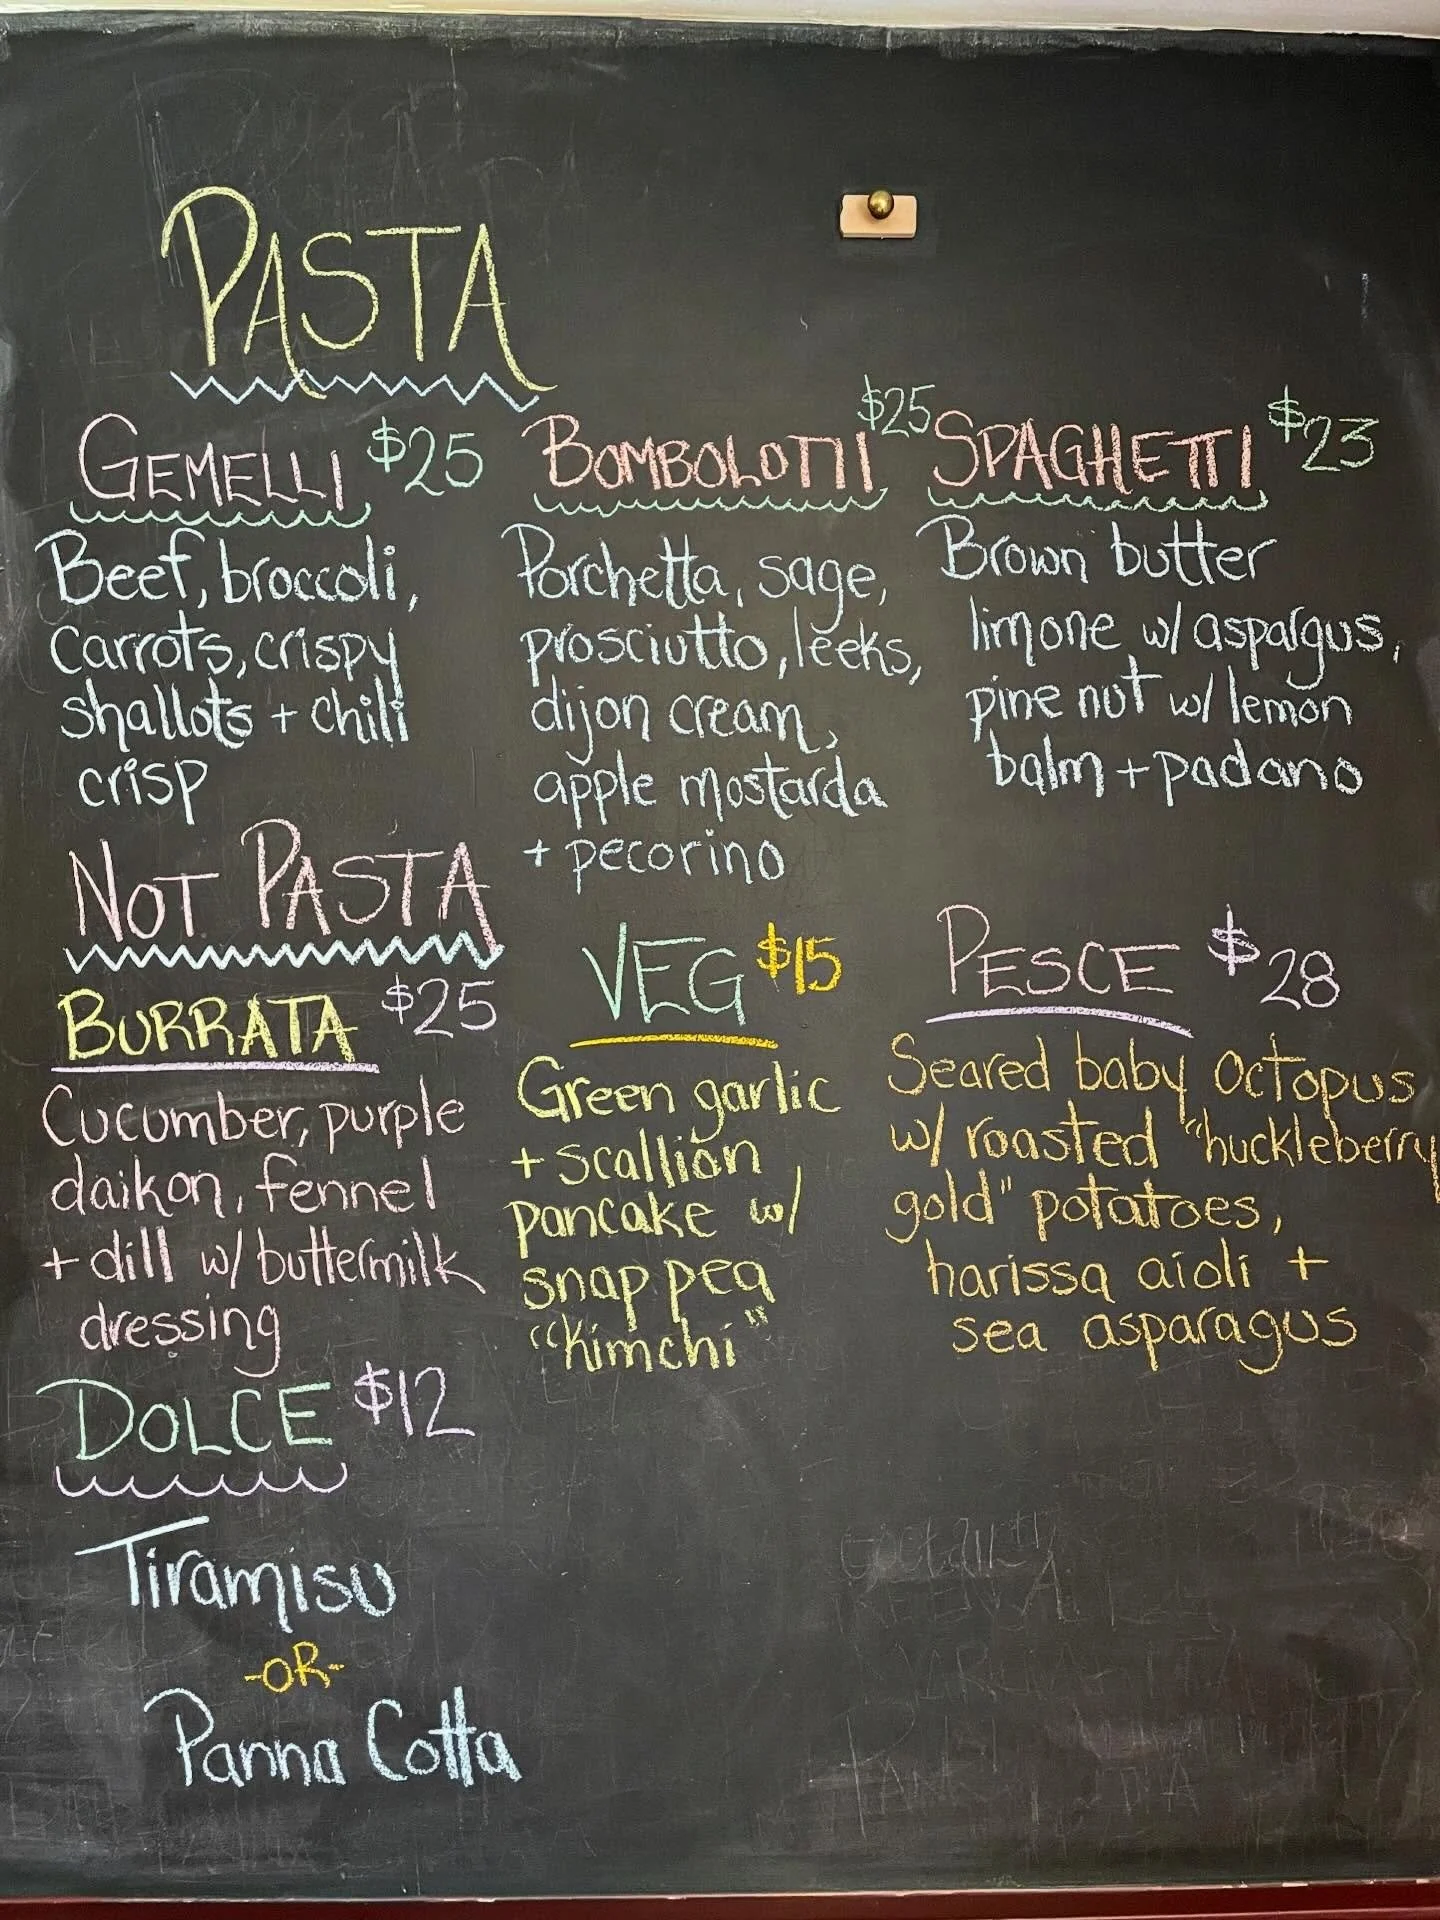 PASTA
GEMELLI $25
Beef, broccoli,
carrots, crispy
shallots + chili
crisp
BOMBOLOTTI $25
Porchetta, sage,
prosciutto, leeks,
dijon cream,
apple mostarda
+ pecorino
SPAGHETTI $23
Brown butter
limone w/ asparagus,
pine nut w/ lemon
balm + padano
NOT PASTA
BURRATA $25
Cucumber, purple
daikon, fennel
+ dill w/ buttermilk
dressing
VEG $15
Green garlic
+ scallion
pancake w/
snap pea
"kimchi"
PESCE $28
Seared baby octopus
w/ roasted "huckleberry
gold" potatoes,
harissa aioli +
sea asparagus
DOLCE $12
Tiramisu
-OR-
Panna Cotta